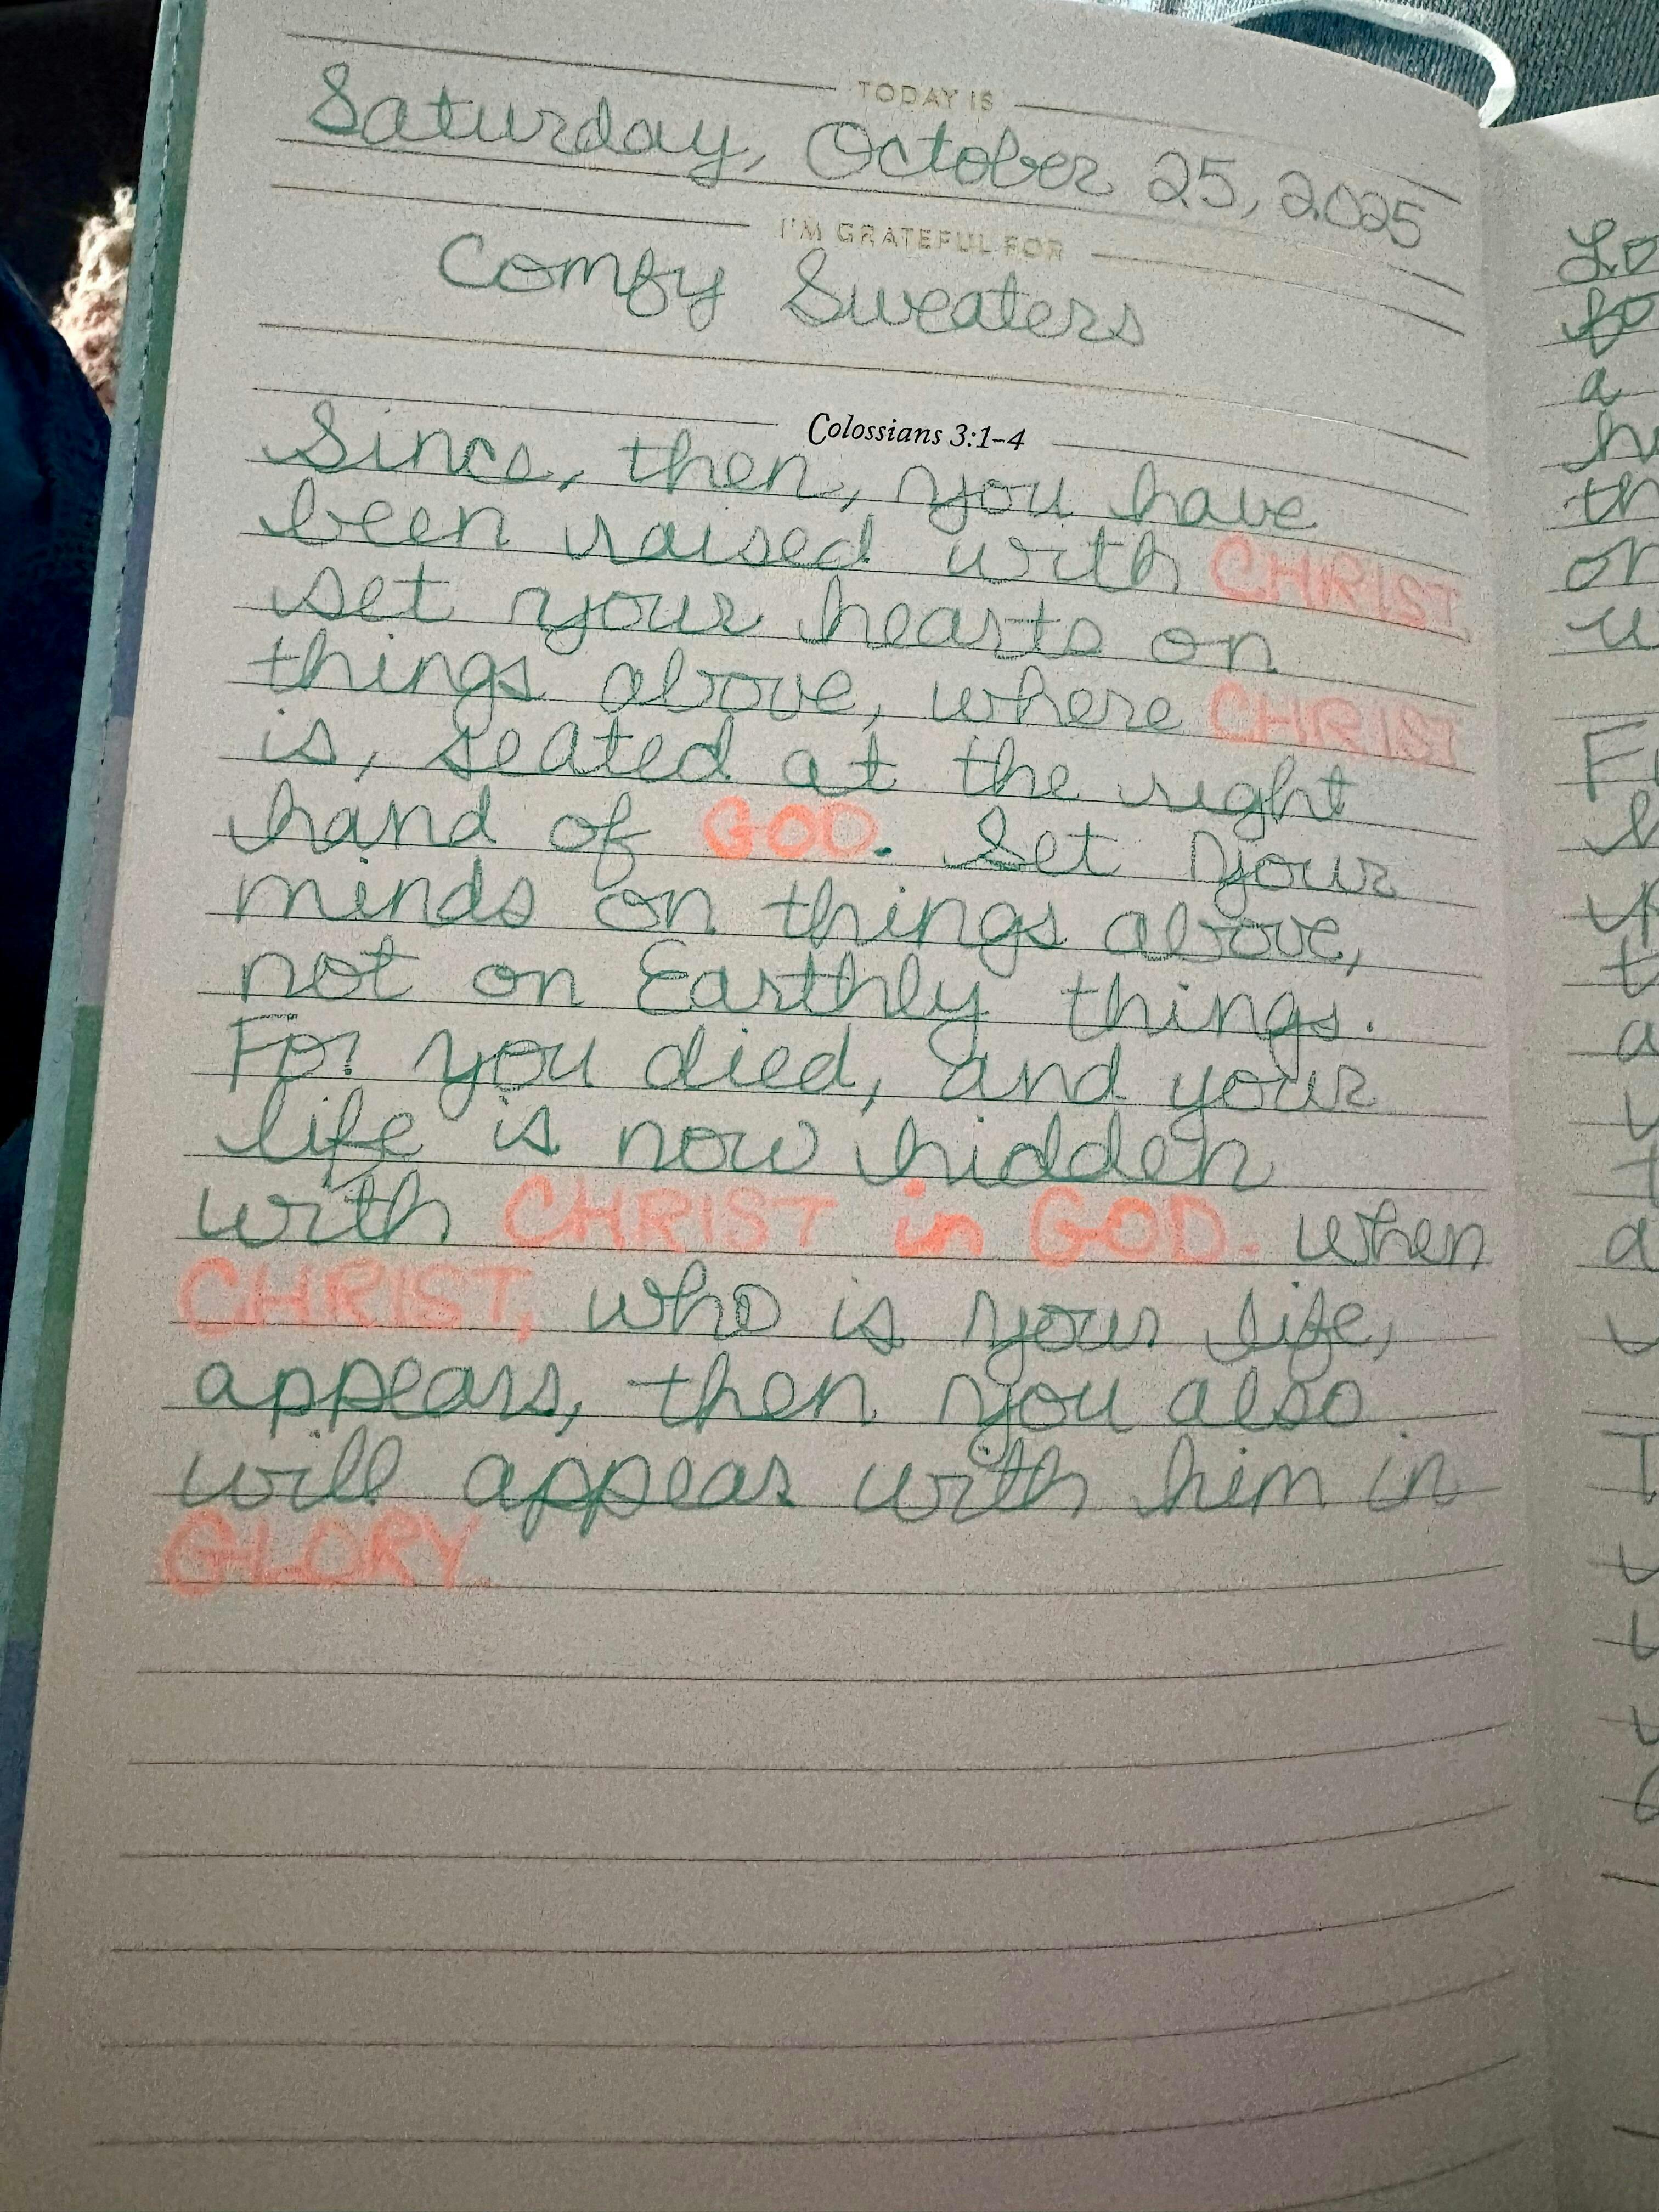 TODAY IS
Saturday, October 25, 2025
I'M GRATEFUL FOR
Comfy Sweaters
Colossians 3:1-4
Since, then, you have
been raised with CHRIST,
set your hearts on
things above, where CHRIST
is, seated at the right
hand of GOD. Set your
minds on things above,
not on Earthly things.
For you died, and your
life is now hidden
with CHRIST in GOD. When
CHRIST, who is your life,
appears, then you also
will appear with him in
GLORY.
a